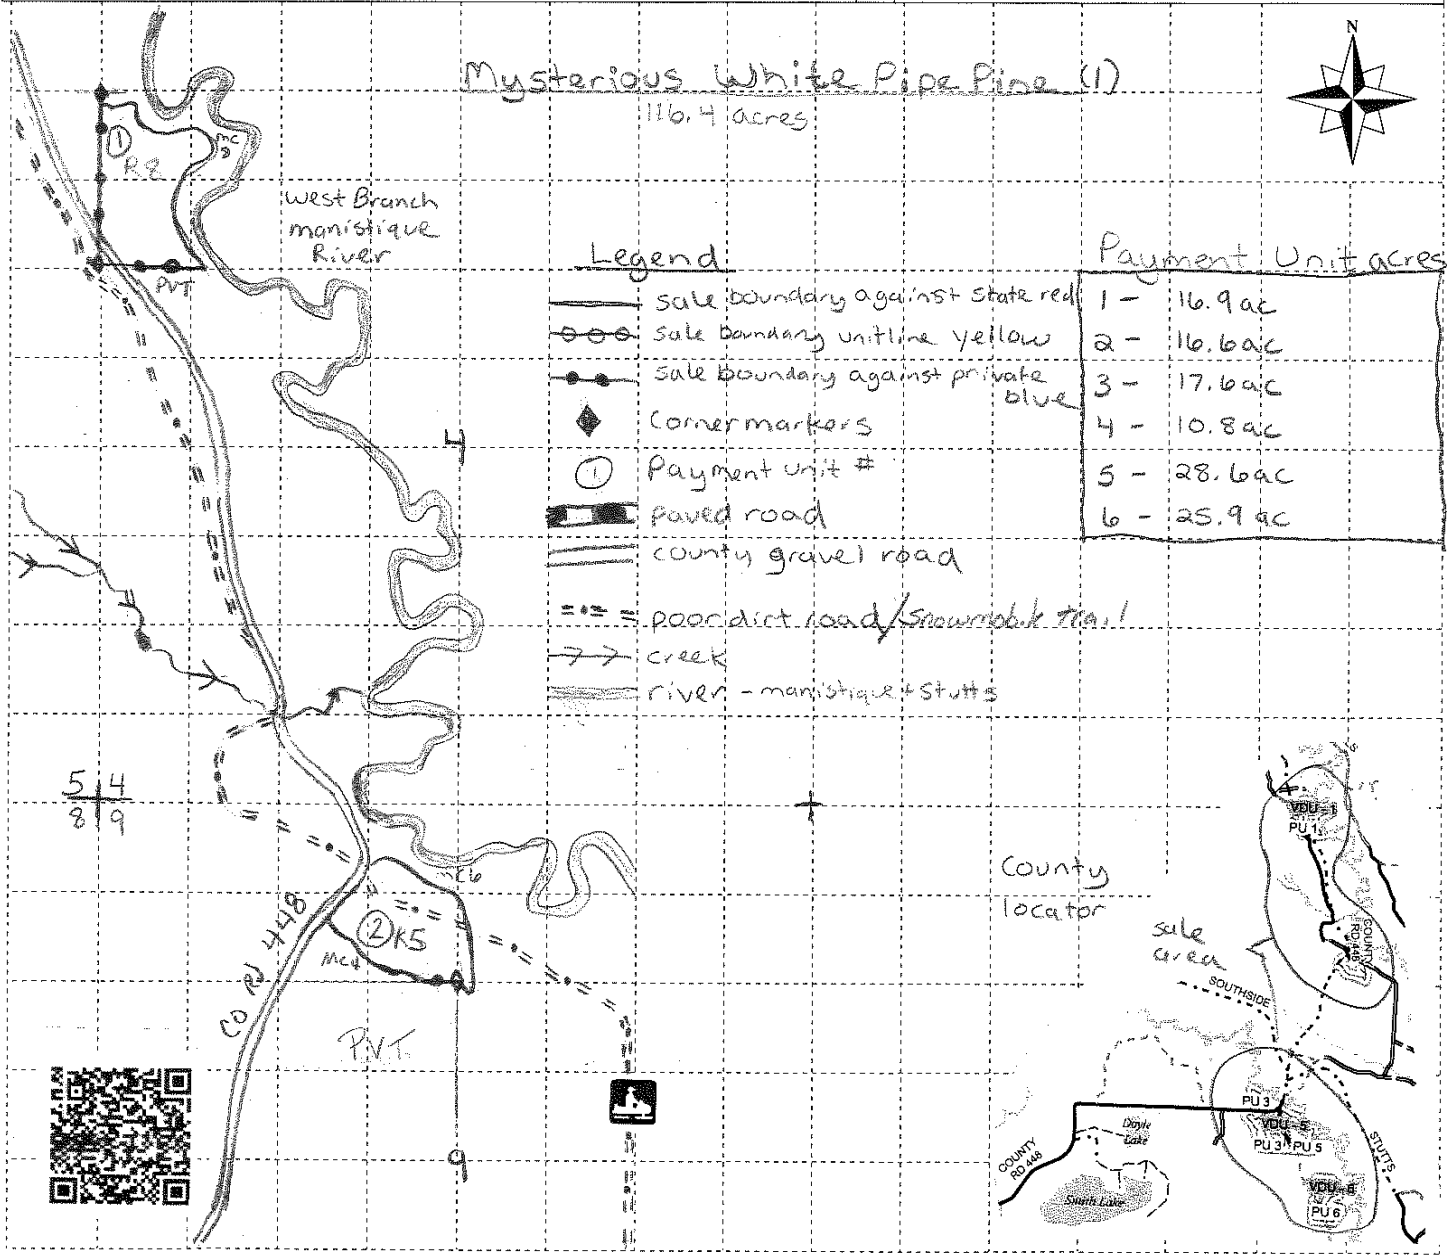 N
Mysterious White Pipe Pine (1)
116.4 acres
1
R8
mc
8
West Branch
manistique
River
PVT
Legend
sale boundary against state red
sale boundary unitline yellow
sale boundary against private
blue
Corner markers
1 Payment unit #
paved road
county gravel road
poor dirt road/snowmobile trail
creek
river - manistique + Stutts
Payment Unit acres
1 - 16.9 ac
2 - 16.6 ac
3 - 17.6 ac
4 - 10.8 ac
5 - 28.6 ac
6 - 25.9 ac
4
5 4
8 9
mc6
2 K5
Mc4
CO RD 448
PVT.
9
County
locator
sale
area
VDU-1
PU 1
COUNTY
RD 448
SOUTHSIDE
PU 3
VDU-5
PU 3 PU 5
Doyle
Lake
COUNTY
RD 448
Smith Lake
STUTTS
VDU-8
PU 6